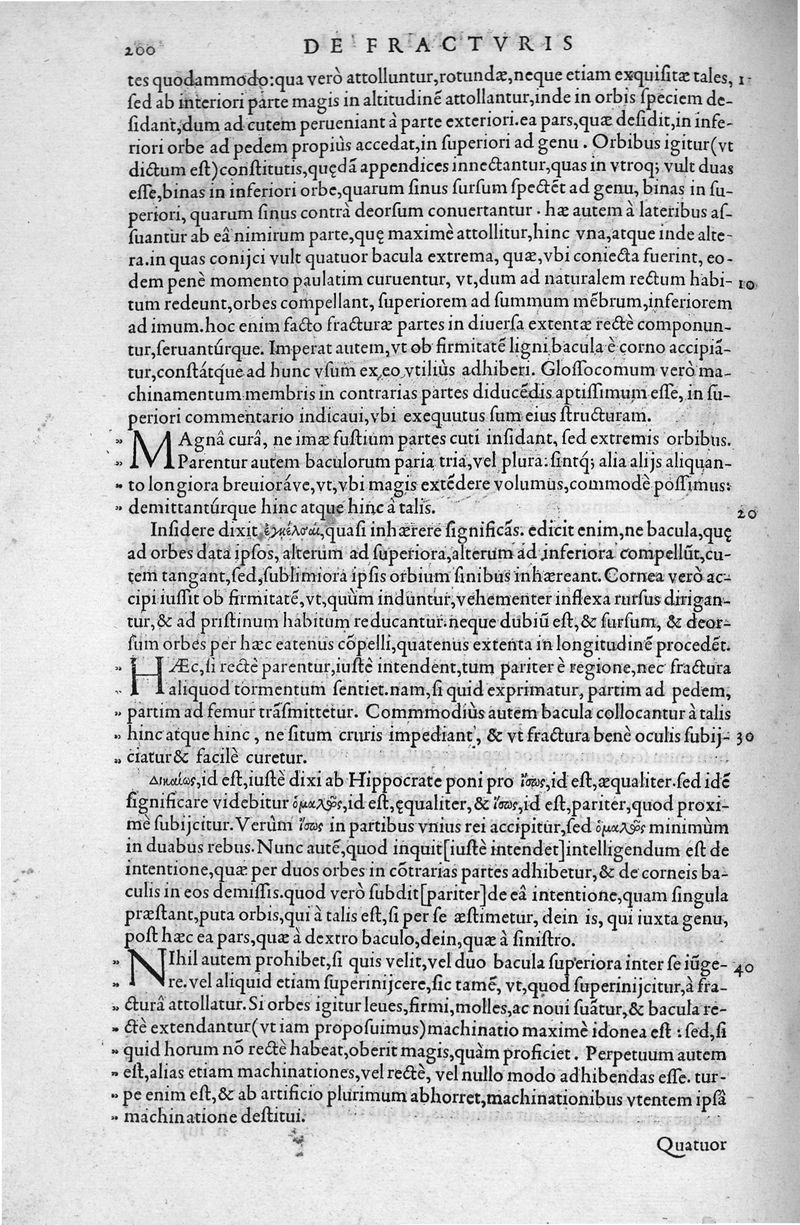 200 DE FRACTVRIS
tes quodammodo:qua verò attolluntur,rotundæ,neque etiam exquiſitæ tales, 1
ſed ab interiori parte magis in altitudinē attollantur,inde in orbis ſpeciem de-
ſidant,dum ad cutem perueniant à parte exteriori.ea pars,quæ deſidit,in infe-
riori orbe ad pedem propiùs accedat,in ſuperiori ad genu . Orbibus igitur(vt
dictum eſt)conſtitutis,quędā appendices innectantur,quas in vtroq; vult duas
eſſe,binas in inferiori orbe,quarum ſinus ſurſum ſpectēt ad genu, binas in ſu-
periori, quarum ſinus contrà deorſum conuertantur . hæ autem à lateribus aſ-
ſuantur ab eâ nimirum parte,quę maximè attollitur,hinc vna,atque inde alte-
ra.in quas conijci vult quatuor bacula extrema, quæ,vbi coniecta fuerint, eo-
dem penè momento paulatim curuentur, vt,dum ad naturalem rectum habi- 10
tum redeunt,orbes compellant, ſuperiorem ad ſummum mēbrum,inferiorem
ad imum.hoc enim facto fracturæ partes in diuerſa extentæ rectè componun-
tur,ſeruantúrque. Imperat autem,vt ob firmitatē ligni bacula è corno accipiā-
tur,conſtátque ad hunc vſum ex eo vtiliùs adhiberi. Gloſſocomum verò ma-
chinamentum membris in contrarias partes diducēdis aptiſſimum eſſe, in ſu-
periori commentario indicaui,vbi exequutus ſum eius ſtructuram.
„ MAgnâ curâ, ne imæ fuſtium partes cuti inſidant, ſed extremis orbibus.
„ Parentur autem baculorum paria tria,vel plura: ſintq; alia alijs aliquan-
„ to longiora breuioráve,vt,vbi magis extēdere volumus,commodè poſſimus:
„ demittantúrque hinc atque hinc à talis. 20
Inſidere dixit ἐγκέλσαι,quaſi inhærere ſignificās. edicit enim,ne bacula,quę
ad orbes data ipſos, alterum ad ſuperiora,alterum ad inferiora compellūt,cu-
tem tangant,ſed,ſublimiora ipſis orbium ſinibus inhæreant. Cornea verò ac-
cipi iuſſit ob firmitatē,vt,quùm induntur,vehementer inflexa rurſus dirigan-
tur,& ad priſtinum habitum reducantur.neque dubiū eſt,& ſurſum, & deor-
ſum orbes per hæc eatenus cōpelli,quatenus extenta in longitudinē procedēt.
„ HÆc,ſi rectè parentur,iuſtè intendent,tum pariter è regione,nec fractura
„ aliquod tormentum ſentiet.nam,ſi quid exprimatur, partim ad pedem,
„ partim ad femur trāſmittetur. Commmodiùs autem bacula collocantur à talis
„ hinc atque hinc , ne ſitum cruris impediant , & vt fractura benè oculis ſubij- 30
„ ciatur& facilè curetur.
Δικαίως,id eſt,iuſtè dixi ab Hippocrate poni pro ἴσως,id eſt,æqualiter.ſed idē
ſignificare videbitur ὁμαλῶς,id eſt,ęqualiter, & ἴσως,id eſt,pariter,quod proxi-
mè ſubijcitur.Verùm ἴσως in partibus vnius rei accipitur,ſed ὁμαλῶς minimùm
in duabus rebus.Nunc autē,quod inquit[iuſtè intendet]intelligendum eſt de
intentione,quæ per duos orbes in cōtrarias partes adhibetur,& de corneis ba-
culis in eos demiſſis.quod verò ſubdit[pariter]de eâ intentione,quam ſingula
præſtant,puta orbis,qui à talis eſt,ſi per ſe æſtimetur, dein is, qui iuxta genu,
poſt hæc ea pars,quæ à dextro baculo,dein,quæ à ſiniſtro.
„ NIhil autem prohibet,ſi quis velit,vel duo bacula ſuperiora inter ſe iūge- 40
„ re.vel aliquid etiam ſuperinijcere,ſic tamē, vt,quod ſuperinijcitur,à fra-
„ cturâ attollatur.Si orbes igitur leues,firmi,molles,ac noui ſuātur,& bacula re-
„ ctè extendantur(vt iam propoſuimus)machinatio maximè idonea eſt : ſed,ſi
„ quid horum nō rectè habeat,oberit magis,quàm proficiet . Perpetuum autem
„ eſt,alias etiam machinationes,vel rectè, vel nullo modo adhibendas eſſe. tur-
„ pe enim eſt,& ab artificio plurimum abhorret,machinationibus vtentem ipſâ
„ machinatione deſtitui.
Quatuor